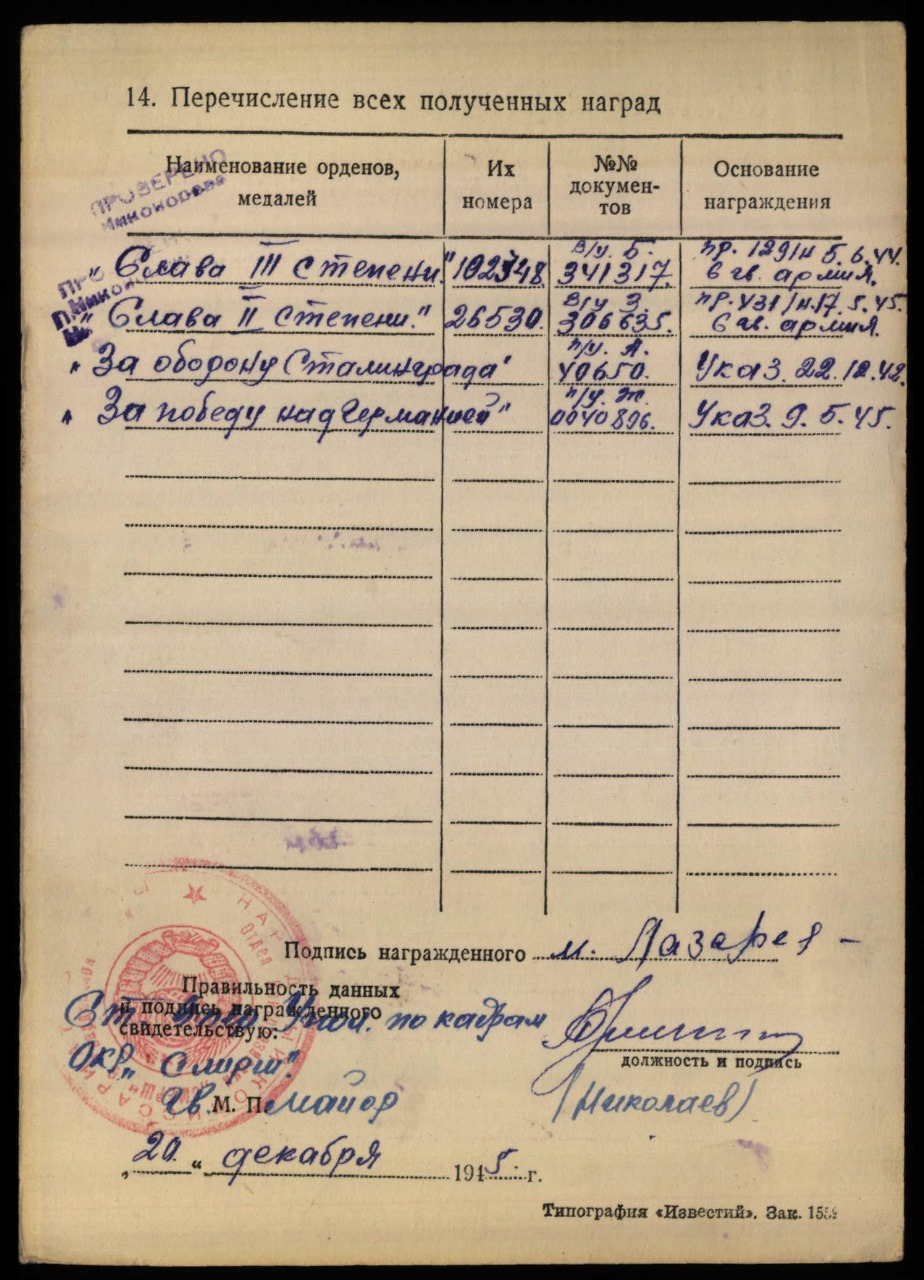 14. Перечисление всех полученных наград
Наименование орденов, медалей
Их номера
№№ документов
Основание награждения
ПРОВЕРЕНО
"Слава III степени." 102348 В/у. Б. 341317. пр. 129/н 5.6.44. 6 гв. армия.
"Слава II степени." 26530. В/у З. 306635. пр. 431/н 17.5.45. 6 гв. армия.
"За оборону Сталинграда" п/у. А. 40650. Указ. 22.12.42.
"За победу над Германией" п/у. Ж. 0040896. Указ. 9.5.45.
Подпись награжденного м. Лазарев
Правильность данных
и подпись награжденного
свидетельствую:
Ст. Упол. по кадрам
ОКР "Смерш".
должность и подпись
Гв. М. П. майор (Николаев)
"20" декабря 1945 г.
Типография «Известий». Зак.